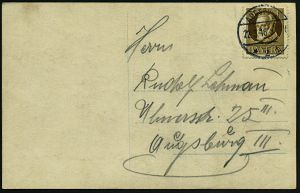 Herrn
Rudolf Lehman
Ulmerstr. 25 III.
Augsburg III.